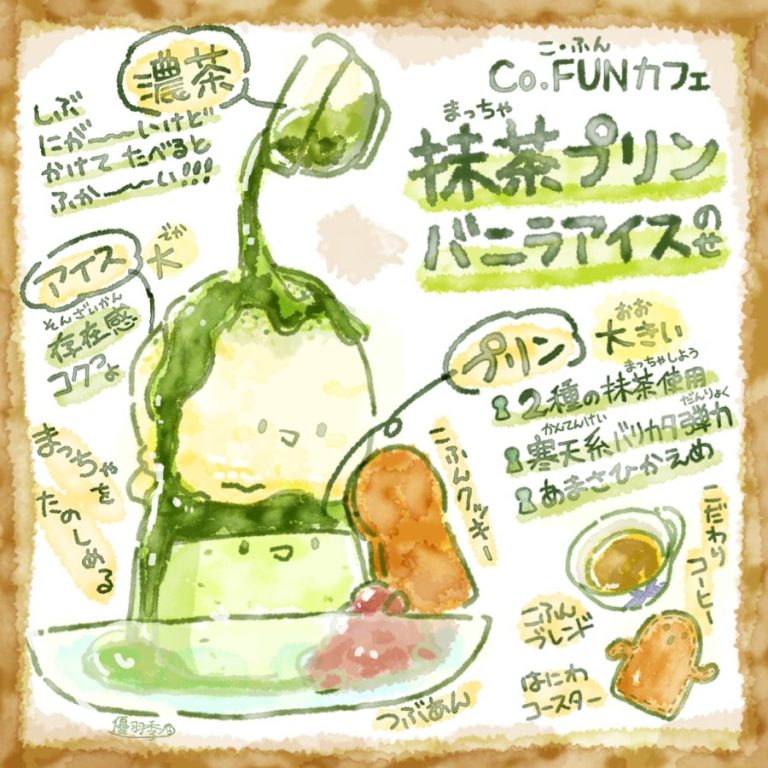 こ・ふん
Co.FUNカフェ
まっちゃ
抹茶プリン
バニラアイスのせ
濃茶
しぶ
にが〜〜いけど
かけて たべると
ふか〜〜い!!!
アイス
でか
大
そんざいかん
存在感
コクつよ
まっちゃを
たのしめる
プリン
おお
大きい
まっちゃしよう
2種の抹茶使用
かんてんけい だんりょく
寒天系バリカタ弾力
あまさひかえめ
こふんクッキー
つぶあん
こだわり
コーヒー
こふん
ブレンド
はにわ
コースター